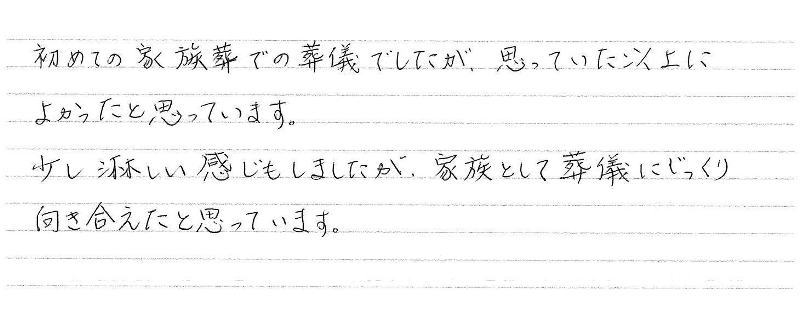 初めての家族葬での葬儀でしたが、思っていた以上に
よかったと思っています。
少し淋しい感じもしましたが、家族として葬儀にじっくり
向き合えたと思っています。